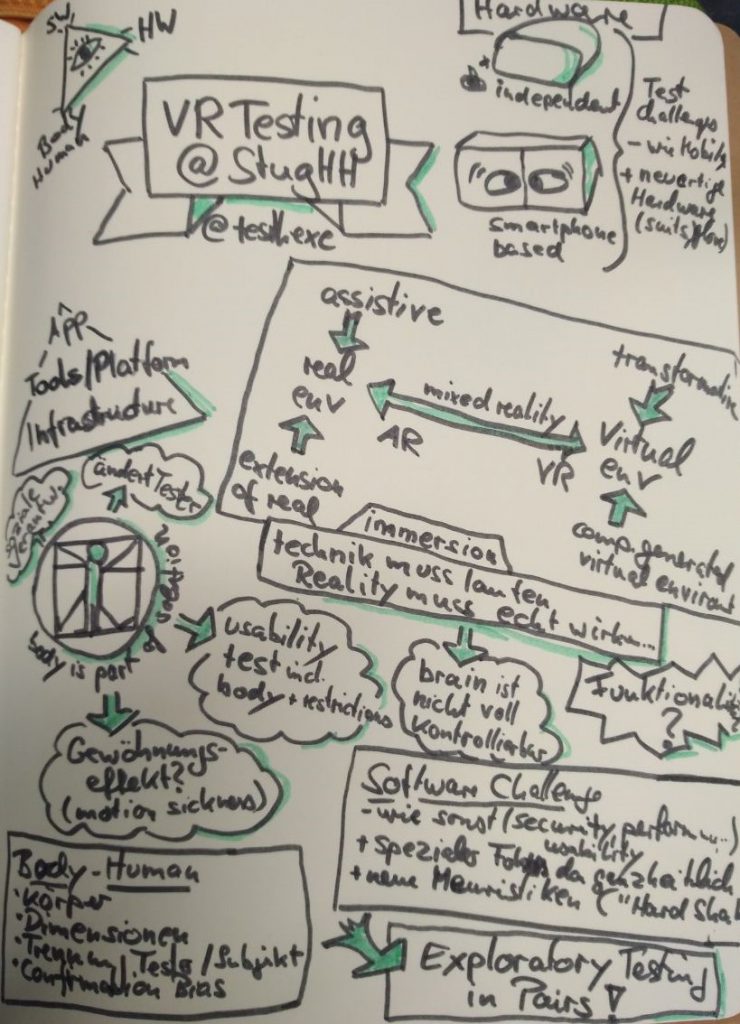 SW
HW
Body
Human
VR Testing
@StugHH
@testhexe
Hardware
independent
smartphone
based
Test
challenges
- wie
+ neuartige
Hardware
(suits,
App
Tools/Platform
Infrastructure
assistive
real
env
extension
of real
mixed reality
AR
VR
transformative
Virtual
env
comp. generated
virtual
immersion
technik muss laufen
Reality muss echt wirken...
soziale
ändert Tester
body is part of
usability
test incl.
body + restrictions
brain ist
nicht voll
kontrollierbar
Funktionali
?
Gewöhnungs-
effekt?
(motion sickness)
Software Challenge
- wie sonst (security, perform...)
usability
+ spezieller da ganzheitlich
+ neue Heuristiken ("Hard
Body-Human
• Körper
• Dimensionen
• Trennung Tests/Subjekt
• Confirmation Bias
Exploratory Testing
in Pairs!